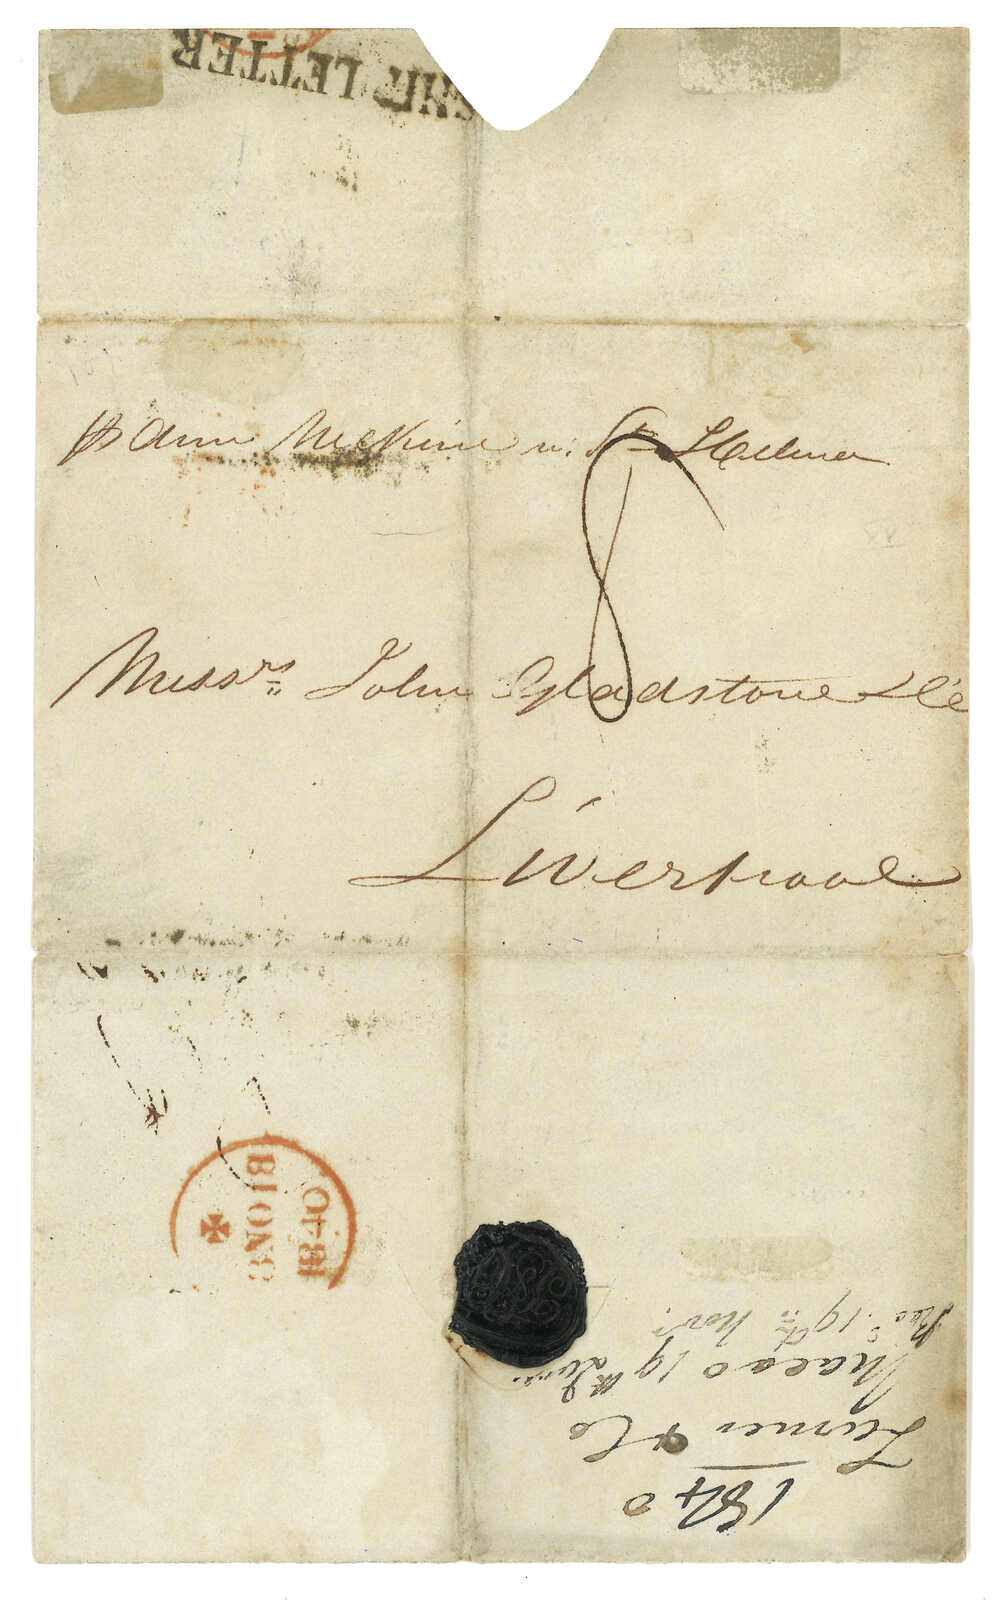 SHIP LETTER
p Ann McKim v: St Helena
8
Messrs John Gladstone & Co
Liverpool
1840
1840
Turner & Co
Macao 19th June
Rec. 19th Nov.